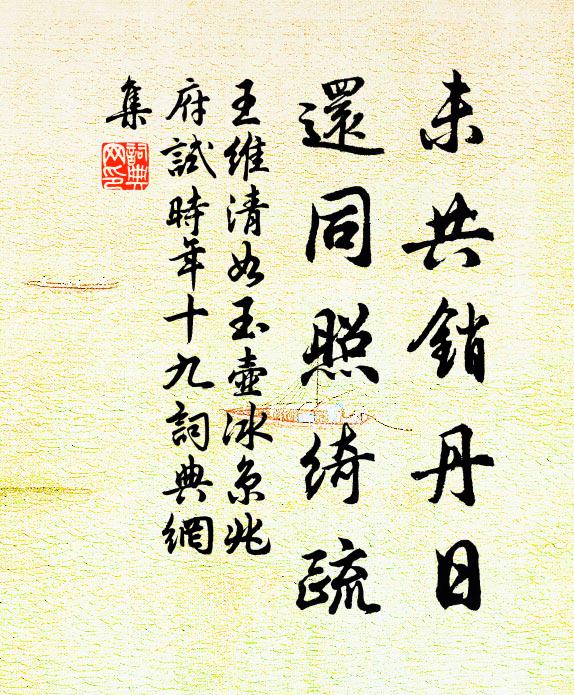 未共銷丹日
還同照綺疏
王維清如玉壺冰京兆
府試時年十九詞典網
集
詞典
网印